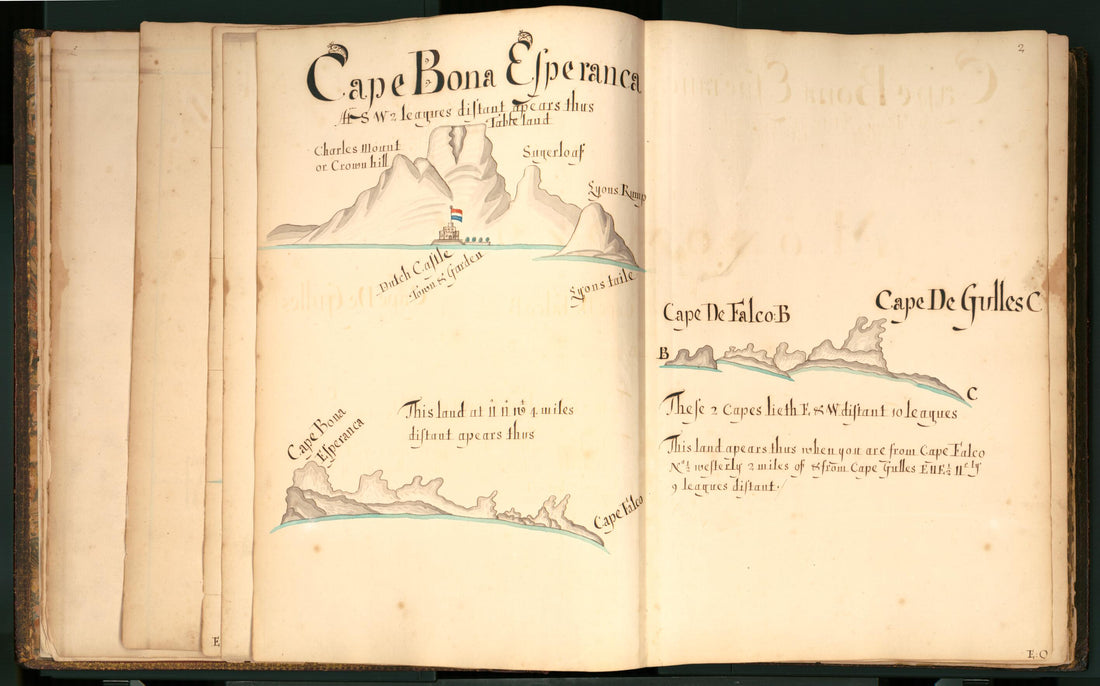 Cape Bona Eſperanca
At S W 2 leagues diſtant apears thus
Table land
Charles Mount
or Crown hill
Sugerloaf
Lyons Rump
Dutch Caſtle
Town & Garden
Lyons taile
This land at 4 miles
diſtant apears thus
Cape Bona
Eſperanca
Cape Falco
2
Cape De Falco:B
Cape De Gulles C
B
C
Theſe 2 Capes lieth E & W diſtant 10 leagues
This land apears thus when you are from Cape Falco
weſterly 2 miles of & from Cape Gulles
9 leagues diſtant
E
E:Q